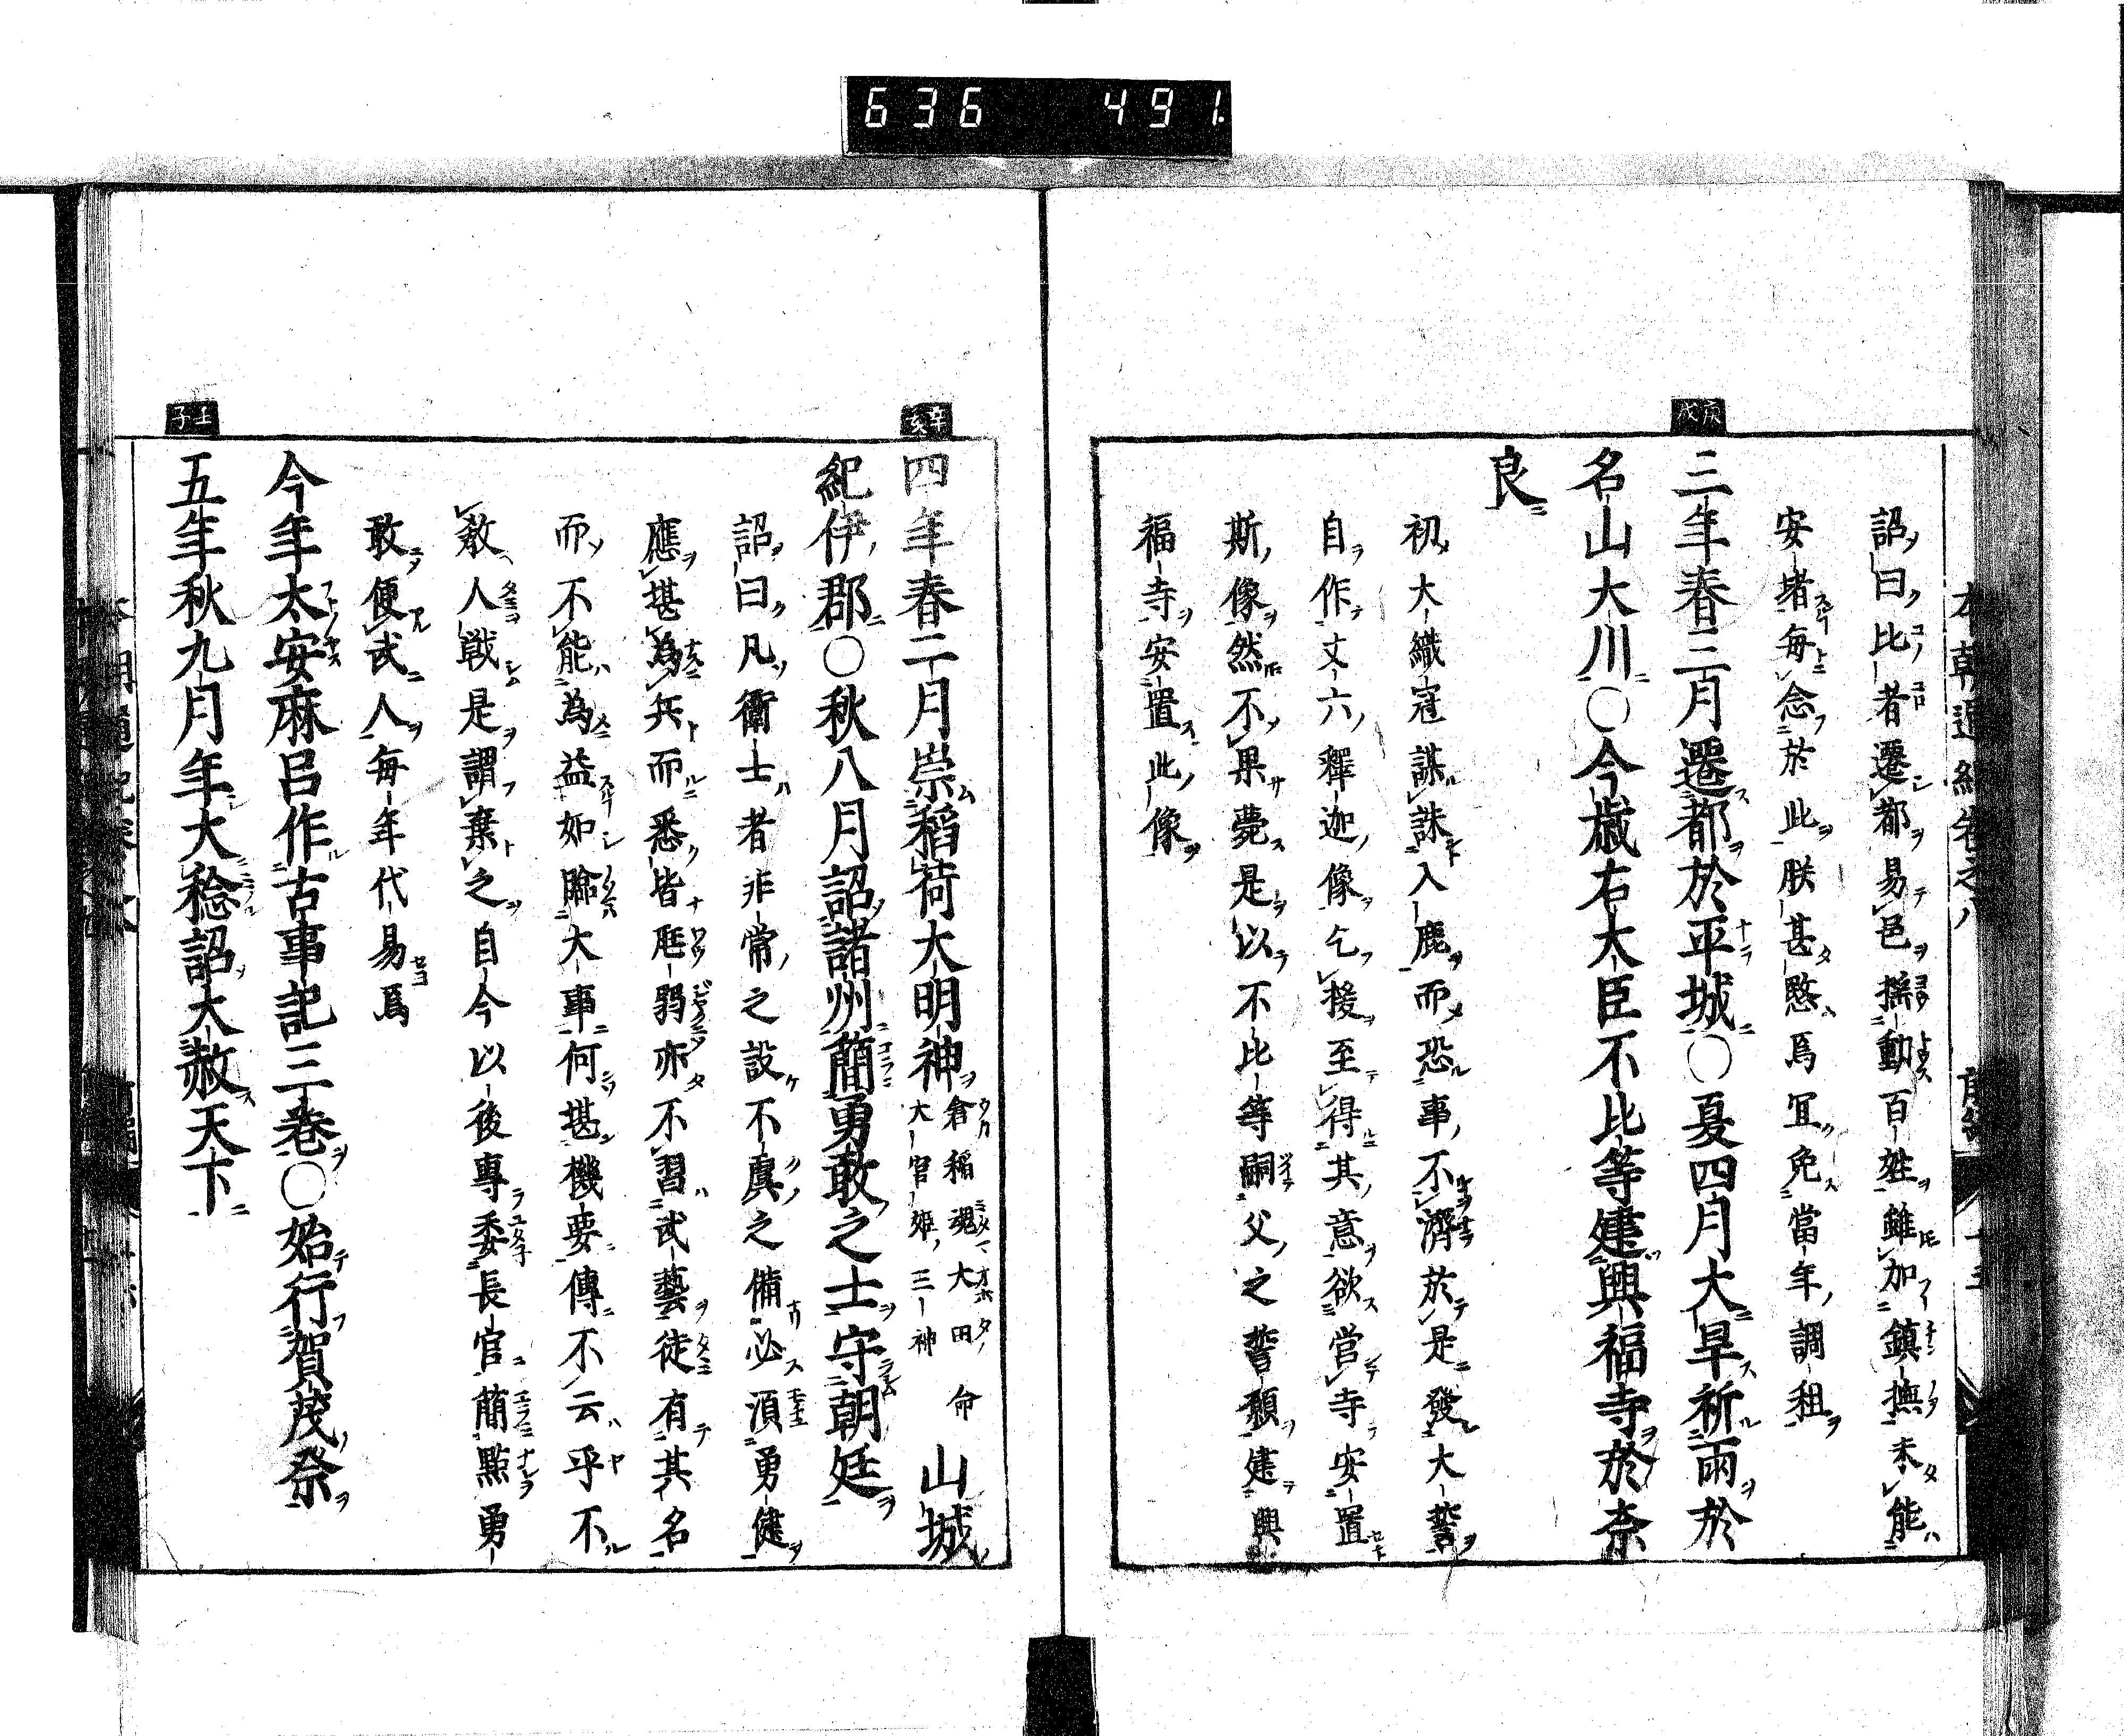 636 491.
本朝通紀卷之八 前編
詔曰比者遷都易邑搖動百姓雖加鎮撫未能
安堵毎念於此朕甚愍焉冝免當年調租
庚戌
三年春三月遷都於平城〇夏四月大旱祈雨於
名山大川〇今歳右大臣不比等建興福寺於奈
良
初大織冠謀誅入鹿而恐事不濟於是發大誓
自作丈六釋迦像乞援至得其意欲営寺安置
斯像然不果薨是以不比等嗣父之誓願建興
福寺安置此像
辛亥
四年春二月崇稲荷大明神倉稲魂大田命大官姫三神山城
紀伊郡〇秋八月詔諸州簡勇敢之士守朝廷
詔曰凡衛士者非常之設不虞之備必湏勇健
應堪為兵而悉皆尫弱亦不習武藝徒有其名
而不能為益如臨大事何堪機要傳不云乎不
教人戦是謂棄之自今以後專委長官簡點勇
敢便武人毎年代易焉
今年太安麻呂作古事記三卷〇始行賀茂祭
壬子
五年秋九月年大稔詔大赦天下